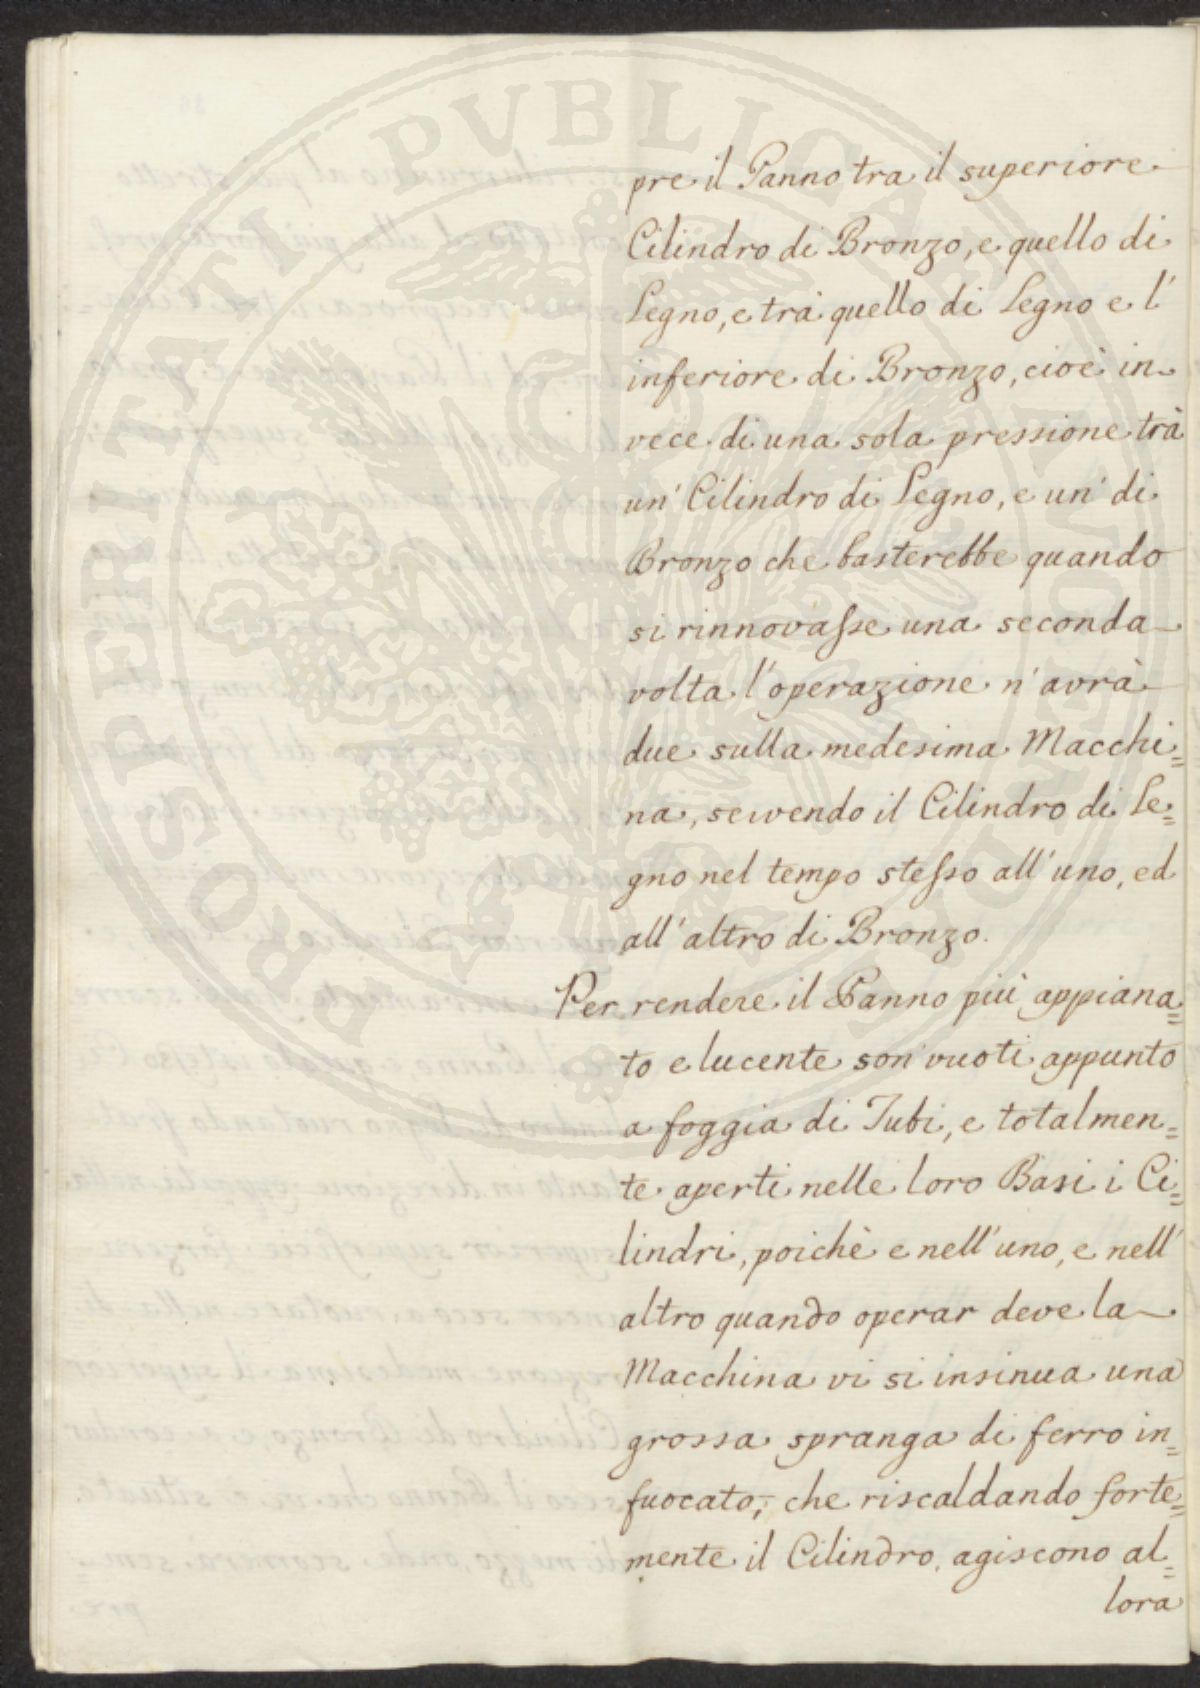 pre il Panno tra il superiore
Cilindro di Bronzo, e quello di
Legno, e trà quello di Legno e l'
inferiore di Bronzo, cioè in-
vece di una sola pressione trà
un' Cilindro di Legno, e un' di
Bronzo che basterebbe quando
si rinnovaſse una seconda
volta l'operazione n'avrà
due sulla medesima Macchi=
na, servendo il Cilindro di Le=
gno nel tempo steſso all'uno, ed
all'altro di Bronzo.
Per rendere il Panno più appiana=
to e lucente son' vuoti appunto
a foggia di Tubi, e totalmen=
te aperti nelle loro Basi i Ci=
lindri, poichè e nell'uno, e nell'
altro quando operar deve la
Macchina vi si insinua una
grossa spranga di ferro in=
fuocato, che riscaldando forte=
mente il Cilindro, agiscono al=
lora
PROSPERITATI PVBLICAE